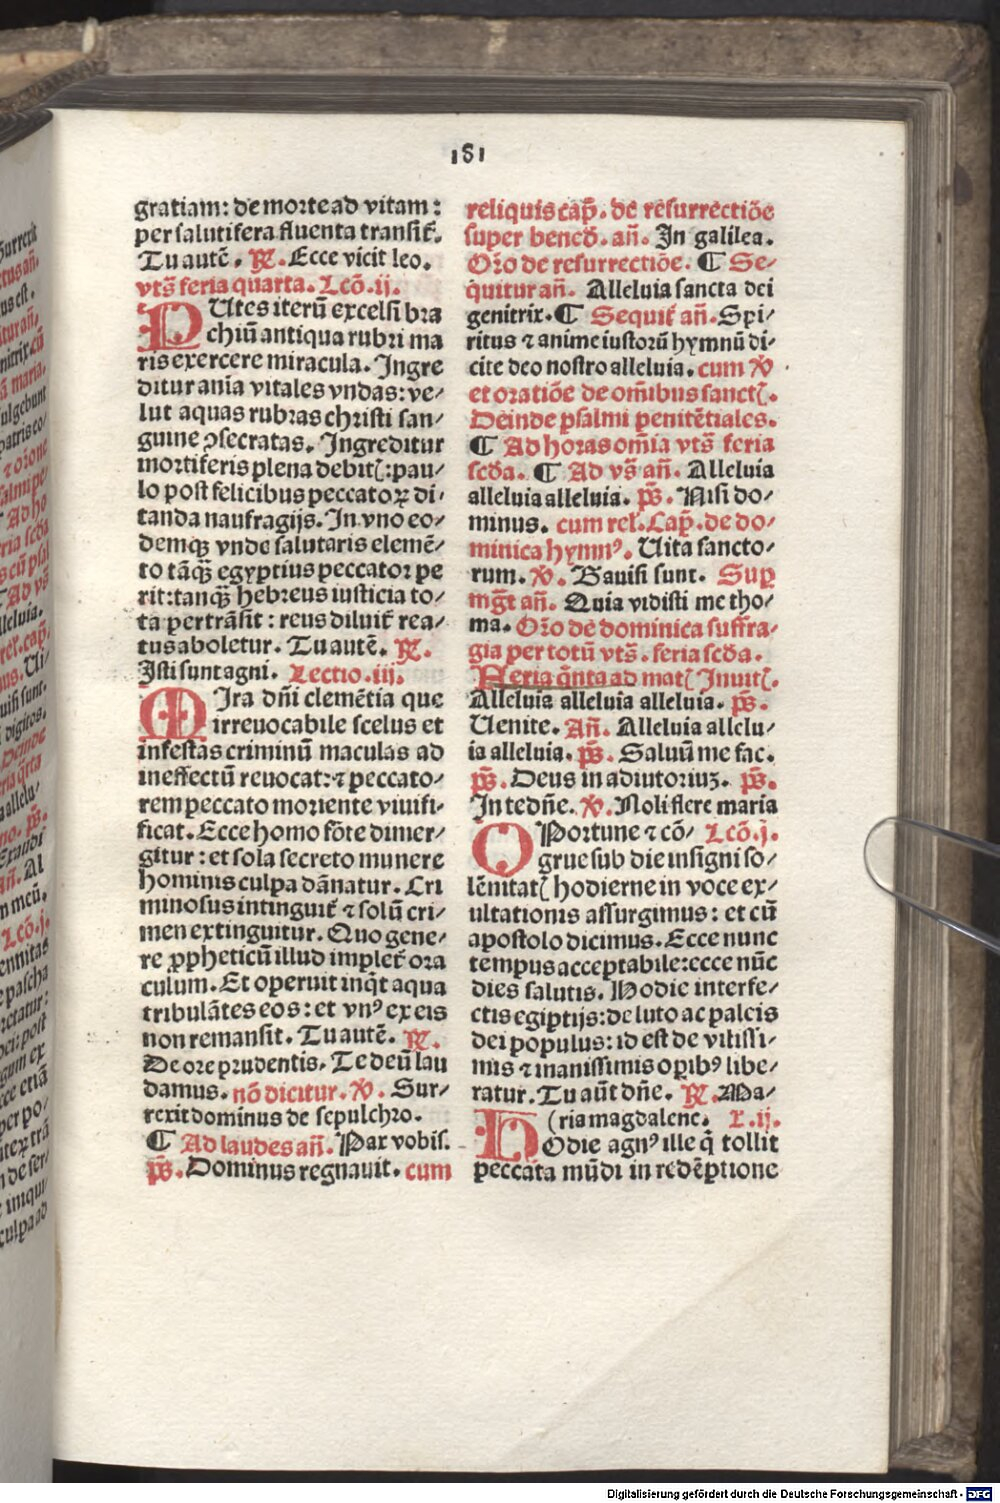 181
gratiam: de morte ad vitam:
per salutifera fluenta transit̄.
Tu autē. ℟. Ecce vicit leo.
vts̄ feria quarta. Lcō.ij.
PUtes iterū excelsi bra
chiū antiqua rubri ma
ris exercere miracula. Ingre
ditur aīa vitales vndas: ve⸗
lut aquas rubras christi san⸗
guine ꝯsecratas. Ingreditur
mortiferis plena debitꝭ: pau⸗
lo post felicibus peccatoꝝ di⸗
tanda naufragijs. In vno eo⸗
demqꝫ vnde salutaris elemē⸗
to tāqꝫ egyptius peccator pe
rit: tanqꝫ hebreus iusticia to⸗
ta pertrāsit: reus diluit̄ rea⸗
tus aboletur. Tu autē. ℟.
Isti sunt agni. Lectio.iij.
MIra dn̄i clemētia que
irreuocabile scelus et
infestas criminū maculas ad
ineffectū reuocat: ⁊ peccato⸗
rem peccato moriente viuifi⸗
ficat. Ecce homo fōte dimer⸗
gitur: et sola secreto munere
hominis culpa dānatur. Cri
minosus intinguit̄ ⁊ solū cri⸗
men extinguitur. Quo gene⸗
re ꝓpheticū illud implet̄ ora
culum. Et operuit inq̄t aqua
tribulātes eos: et vnꝰ ex eis
non remansit. Tu autē. ℟.
De ore prudentis. Te deū lau
damus. nō dicitur. ℣. Sur⸗
rexit dominus de sepulchro.
¶ Ad laudes an̄. Pax vobis.
ps̄. Dominus regnauit. cum
reliquis cap̄. de resurrectiōe
super bened̄. an̄. In galilea.
Oro de resurrectiōe. ¶ Se⸗
quitur an̄. Alleluia sancta dei
genitrix. ¶ Sequit̄ an̄. Spi⸗
ritus ⁊ anime iustorū hymnū di⸗
cite deo nostro alleluia. cum ℣
et oratiōe de om̄ibus sanctꝭ.
Deinde psalmi penitētiales.
¶ Ad horas om̄ia vts̄ feria
scd̄a. ¶ Ad vs̄ an̄. Alleluia
alleluia alleluia. ps̄. Nisi do⸗
minus. cum rel̄. Cap̄. de do⸗
minica hymnꝰ. Uita sancto⸗
rum. ℣. Gauisi sunt. Sup̄
mḡt an̄. Quia vidisti me tho⸗
ma. Or̄o de dominica suffra⸗
gia per totū vts̄. feria scd̄a.
Feria q̄nta ad matꝭ Inuitꝭ.
Alleluia alleluia alleluia. ps̄.
Uenite. An̄. Alleluia allelu⸗
ia alleluia. ps̄. Saluū me fac.
ps̄. Deus in adiutoriuꝫ. ps̄.
In te dn̄e. ℣. Noli flere maria
OPortune ⁊ cō⸗ Lcō.j.
grue sub die insigni so⸗
lēnitatꝭ hodierne in voce ex⸗
ultationis assurgimus: et cū
apostolo dicimus. Ecce nunc
tempus acceptabile: ecce nūc
dies salutis. Hodie interfe⸗
ctis egiptijs: de luto ac paleis
dei populus: id est de vitissi⸗
mis ⁊ inanissimis opibꝰ libe⸗
ratur. Tu aūt dn̄e. ℟. Ma⸗
(ria magdalene. L.ij.
HOdie agnꝰ ille q̄ tollit
peccata mūdi in redēptione
Digitalisierung gefördert durch die Deutsche Forschungsgemeinschaft - DFG